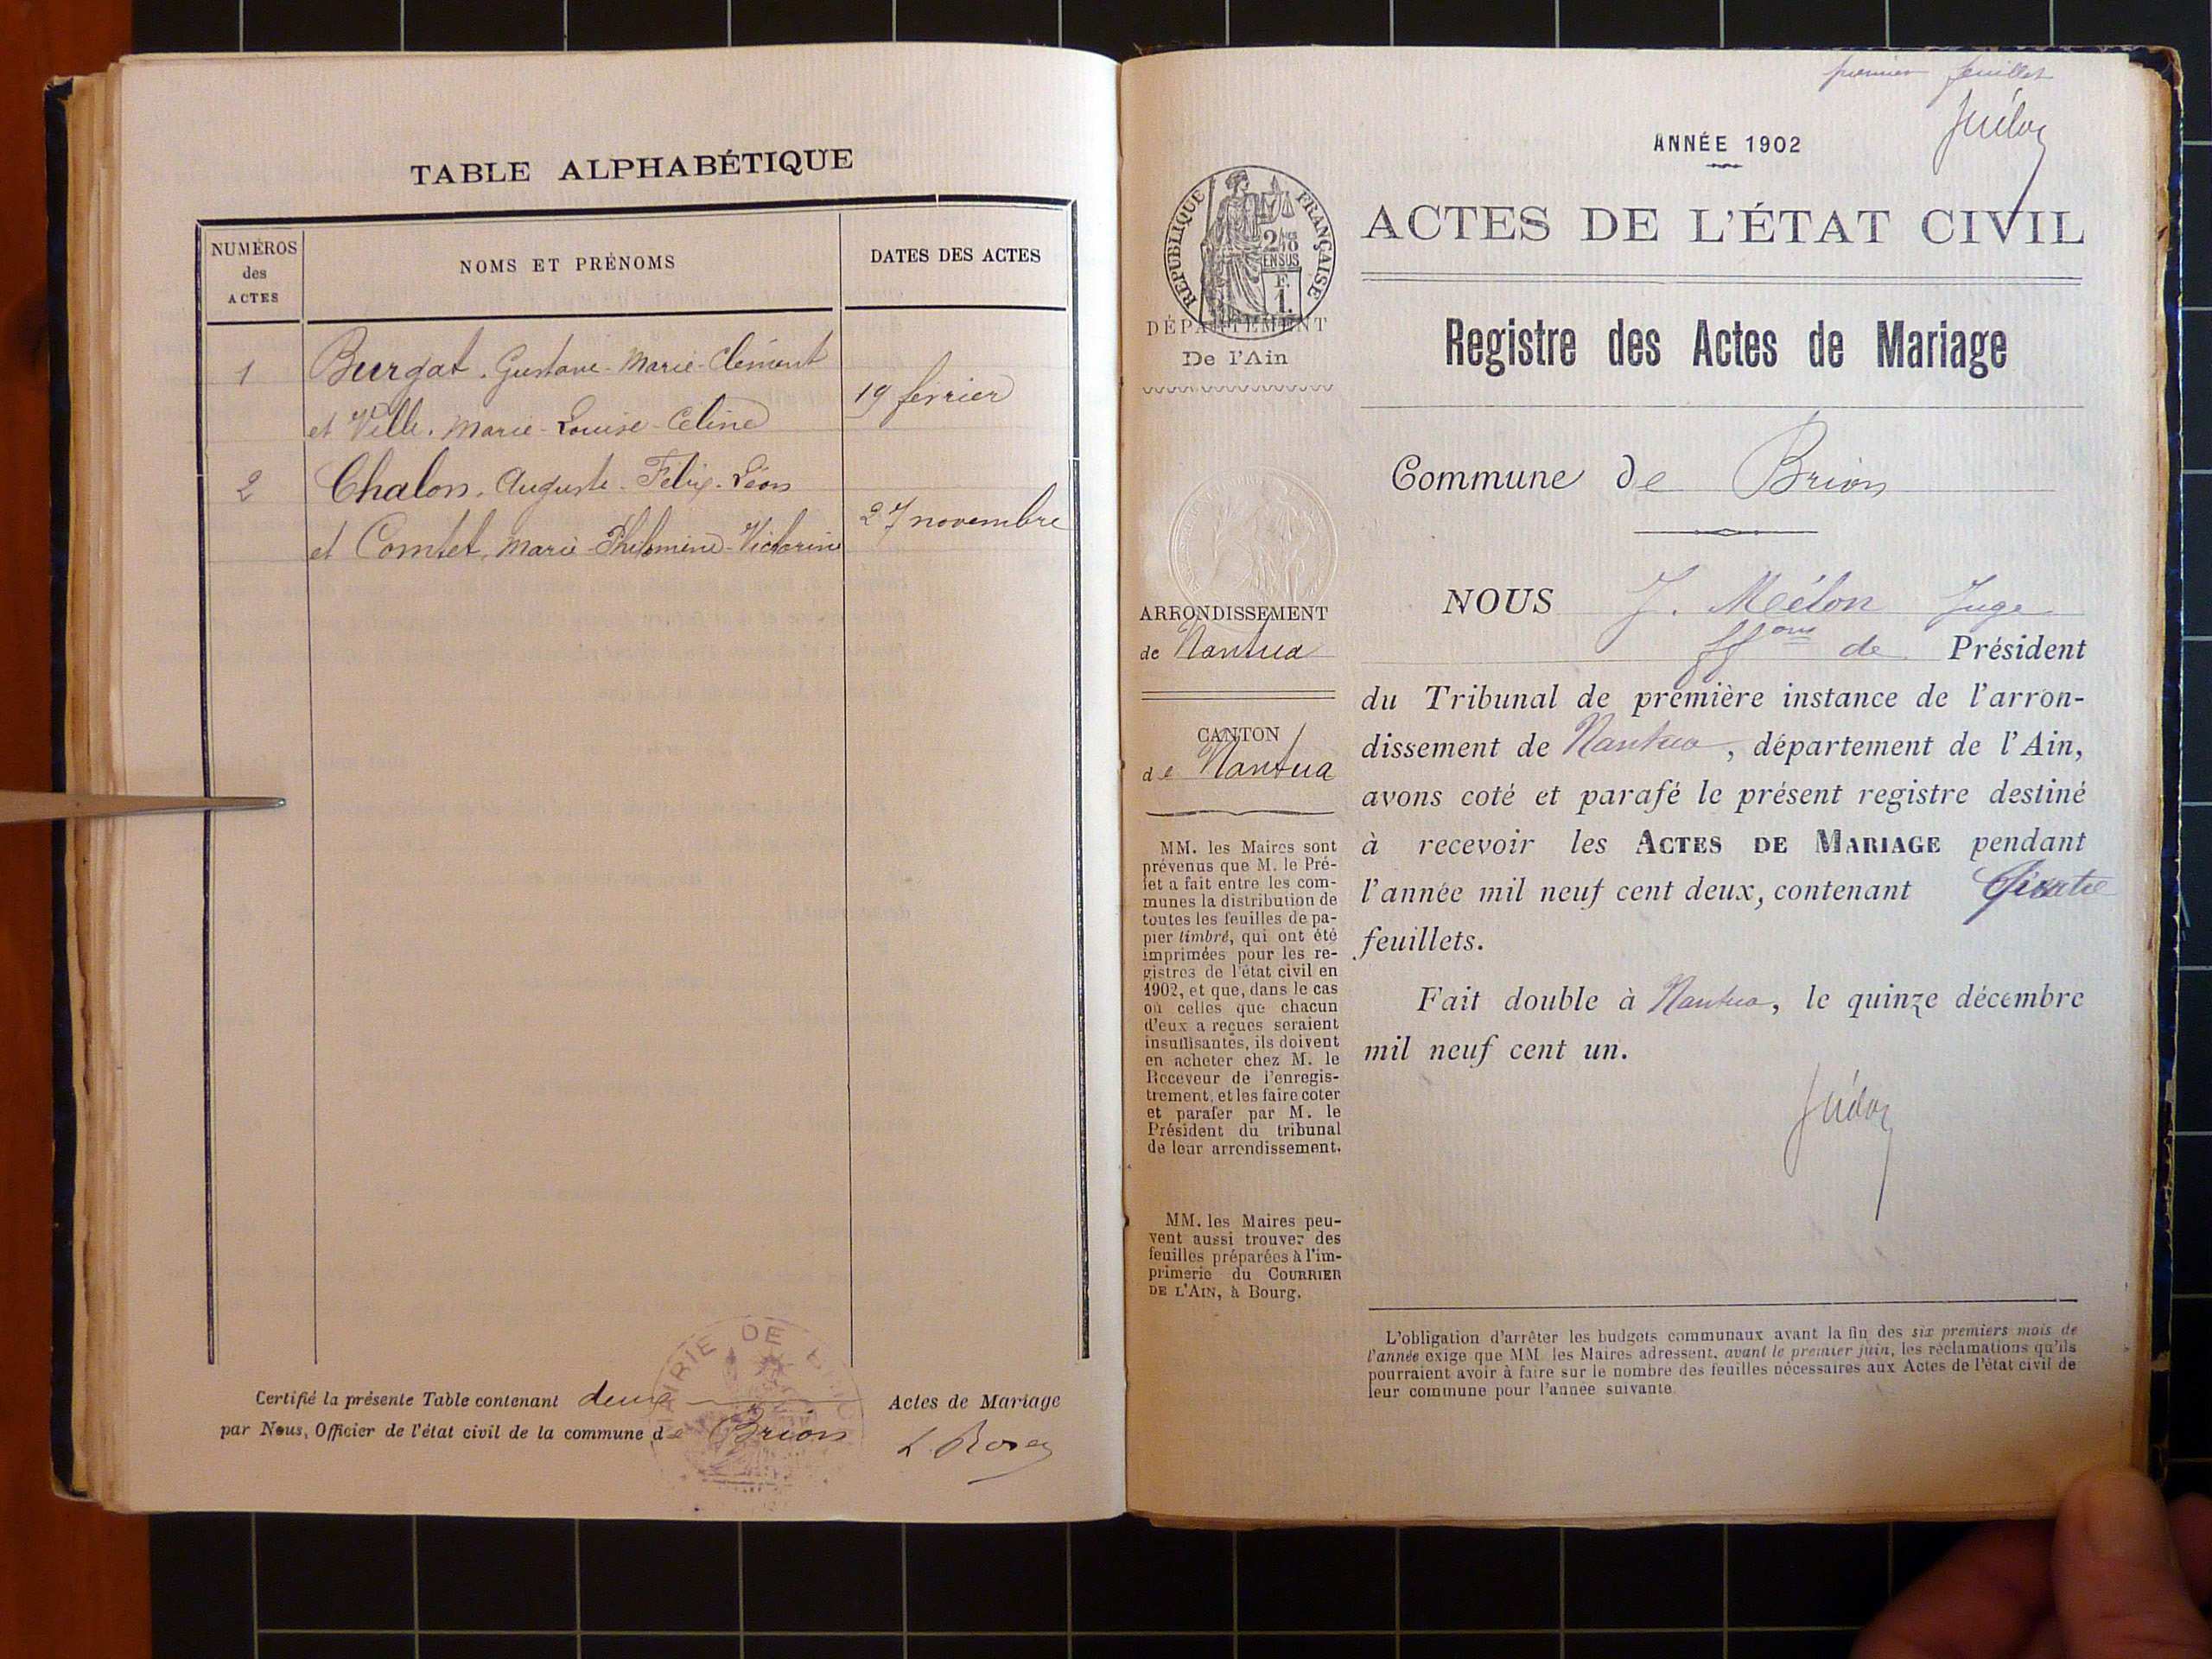 TABLE ALPHABÉTIQUE
NUMÉROS
des
ACTES
NOMS ET PRÉNOMS
DATES DES ACTES
1
Burgat. Gustave-Marie-Clément
et Ville. Marie-Louise-Céline
19 février
2
Chalon. Auguste-Felix-Léon
et Comtet. Marie-Philomène-Victorine
27 novembre
Certifié la présente Table contenant deux Actes de Mariage
par Nous, Officier de l'état civil de la commune de Brion
MAIRIE DE
premier feuillet
ANNÉE 1902
RÉPUBLIQUE FRANÇAISE
ACTES DE L'ÉTAT CIVIL
DÉPARTEMENT
De l'Ain
Registre des Actes de Mariage
Commune de Brion
ARRONDISSEMENT
de Nantua
CANTON
de Nantua
MM. les Maires sont
prévenus que M. le Pré-
fet a fait entre les com-
munes la distribution de
toutes les feuilles de pa-
pier timbré, qui ont été
imprimées pour les re-
gistres de l'état civil en
1902, et que, dans le cas
où celles que chacun
d'eux a reçues seraient
insuffisantes, ils doivent
en acheter chez M. le
Receveur de l'enregis-
trement, et les faire coter
et parafer par M. le
Président du tribunal
de leur arrondissement.
MM. les Maires peu-
vent aussi trouver des
feuilles préparées à l'im-
primerie du COURRIER
DE L'AIN, à Bourg.
NOUS J. Mélon Juge
ffons de Président
du Tribunal de première instance de l'arron-
dissement de Nantua, département de l'Ain,
avons coté et parafé le présent registre destiné
à recevoir les ACTES DE MARIAGE pendant
l'année mil neuf cent deux, contenant Quatre
feuillets.
Fait double à Nantua, le quinze décembre
mil neuf cent un.
L'obligation d'arrêter les budgets communaux avant la fin des six premiers mois de
l'année exige que MM. les Maires adressent, avant le premier juin, les réclamations qu'ils
pourraient avoir à faire sur le nombre des feuilles nécessaires aux Actes de l'état civil de
leur commune pour l'année suivante.